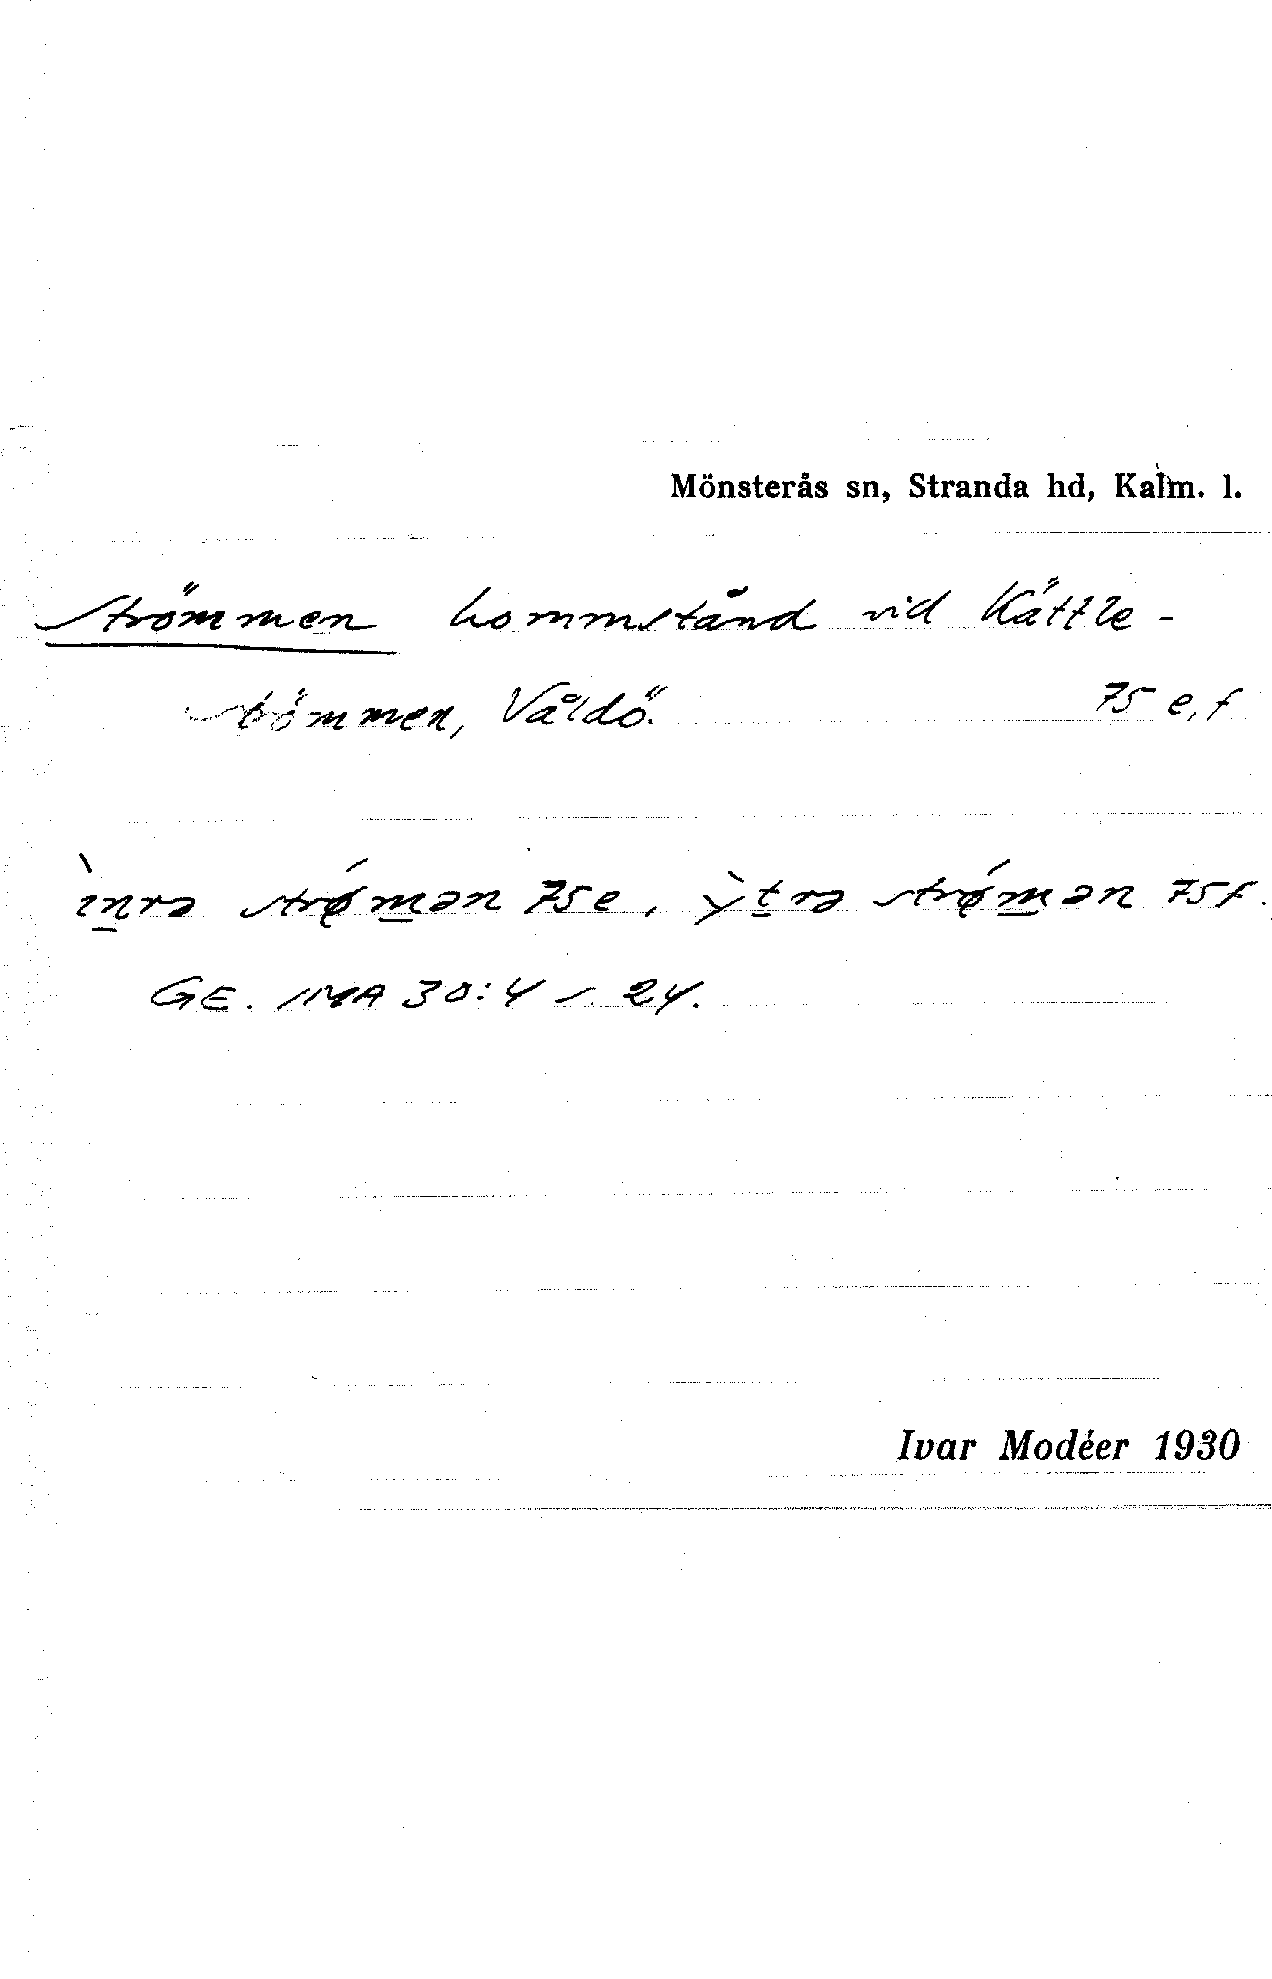 Mönsterås sn, Stranda hd, Kalm. l.
Strömmen hommstånd vid Kättle-
strömmen, Våldö. 75 e, f
ìnrə strǿmən 75 e, ỳtrə strǿmən 75 f.
GE. IMA 30:4 s. 24.
Ivar Modéer 1930